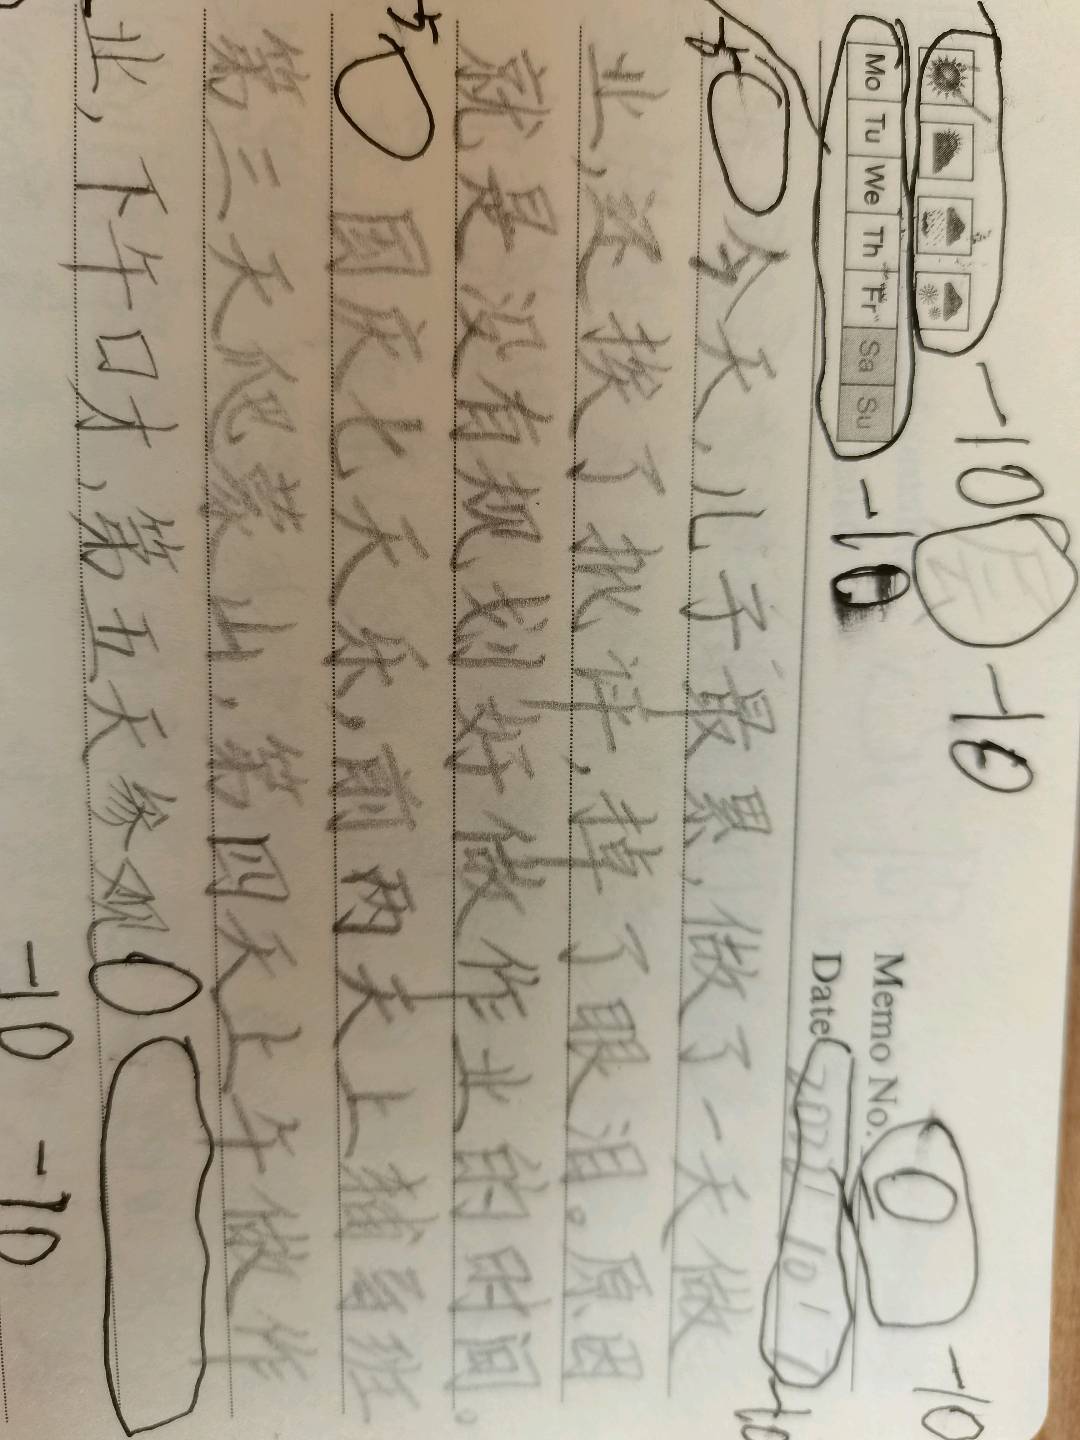 -10 -10 -10
Memo No.
Mo Tu We Th Fr Sa Su -10
Date 10 -10
今天,儿子最累,做了一天做
业,还挨了批评,掉了眼泪。原因
就是没有规划好做作业的时间。
国庆七天乐,前两天上辅导班
第三天爬蒙山,第四天上午做作
业,下午口才,第五天参观
-10 -10